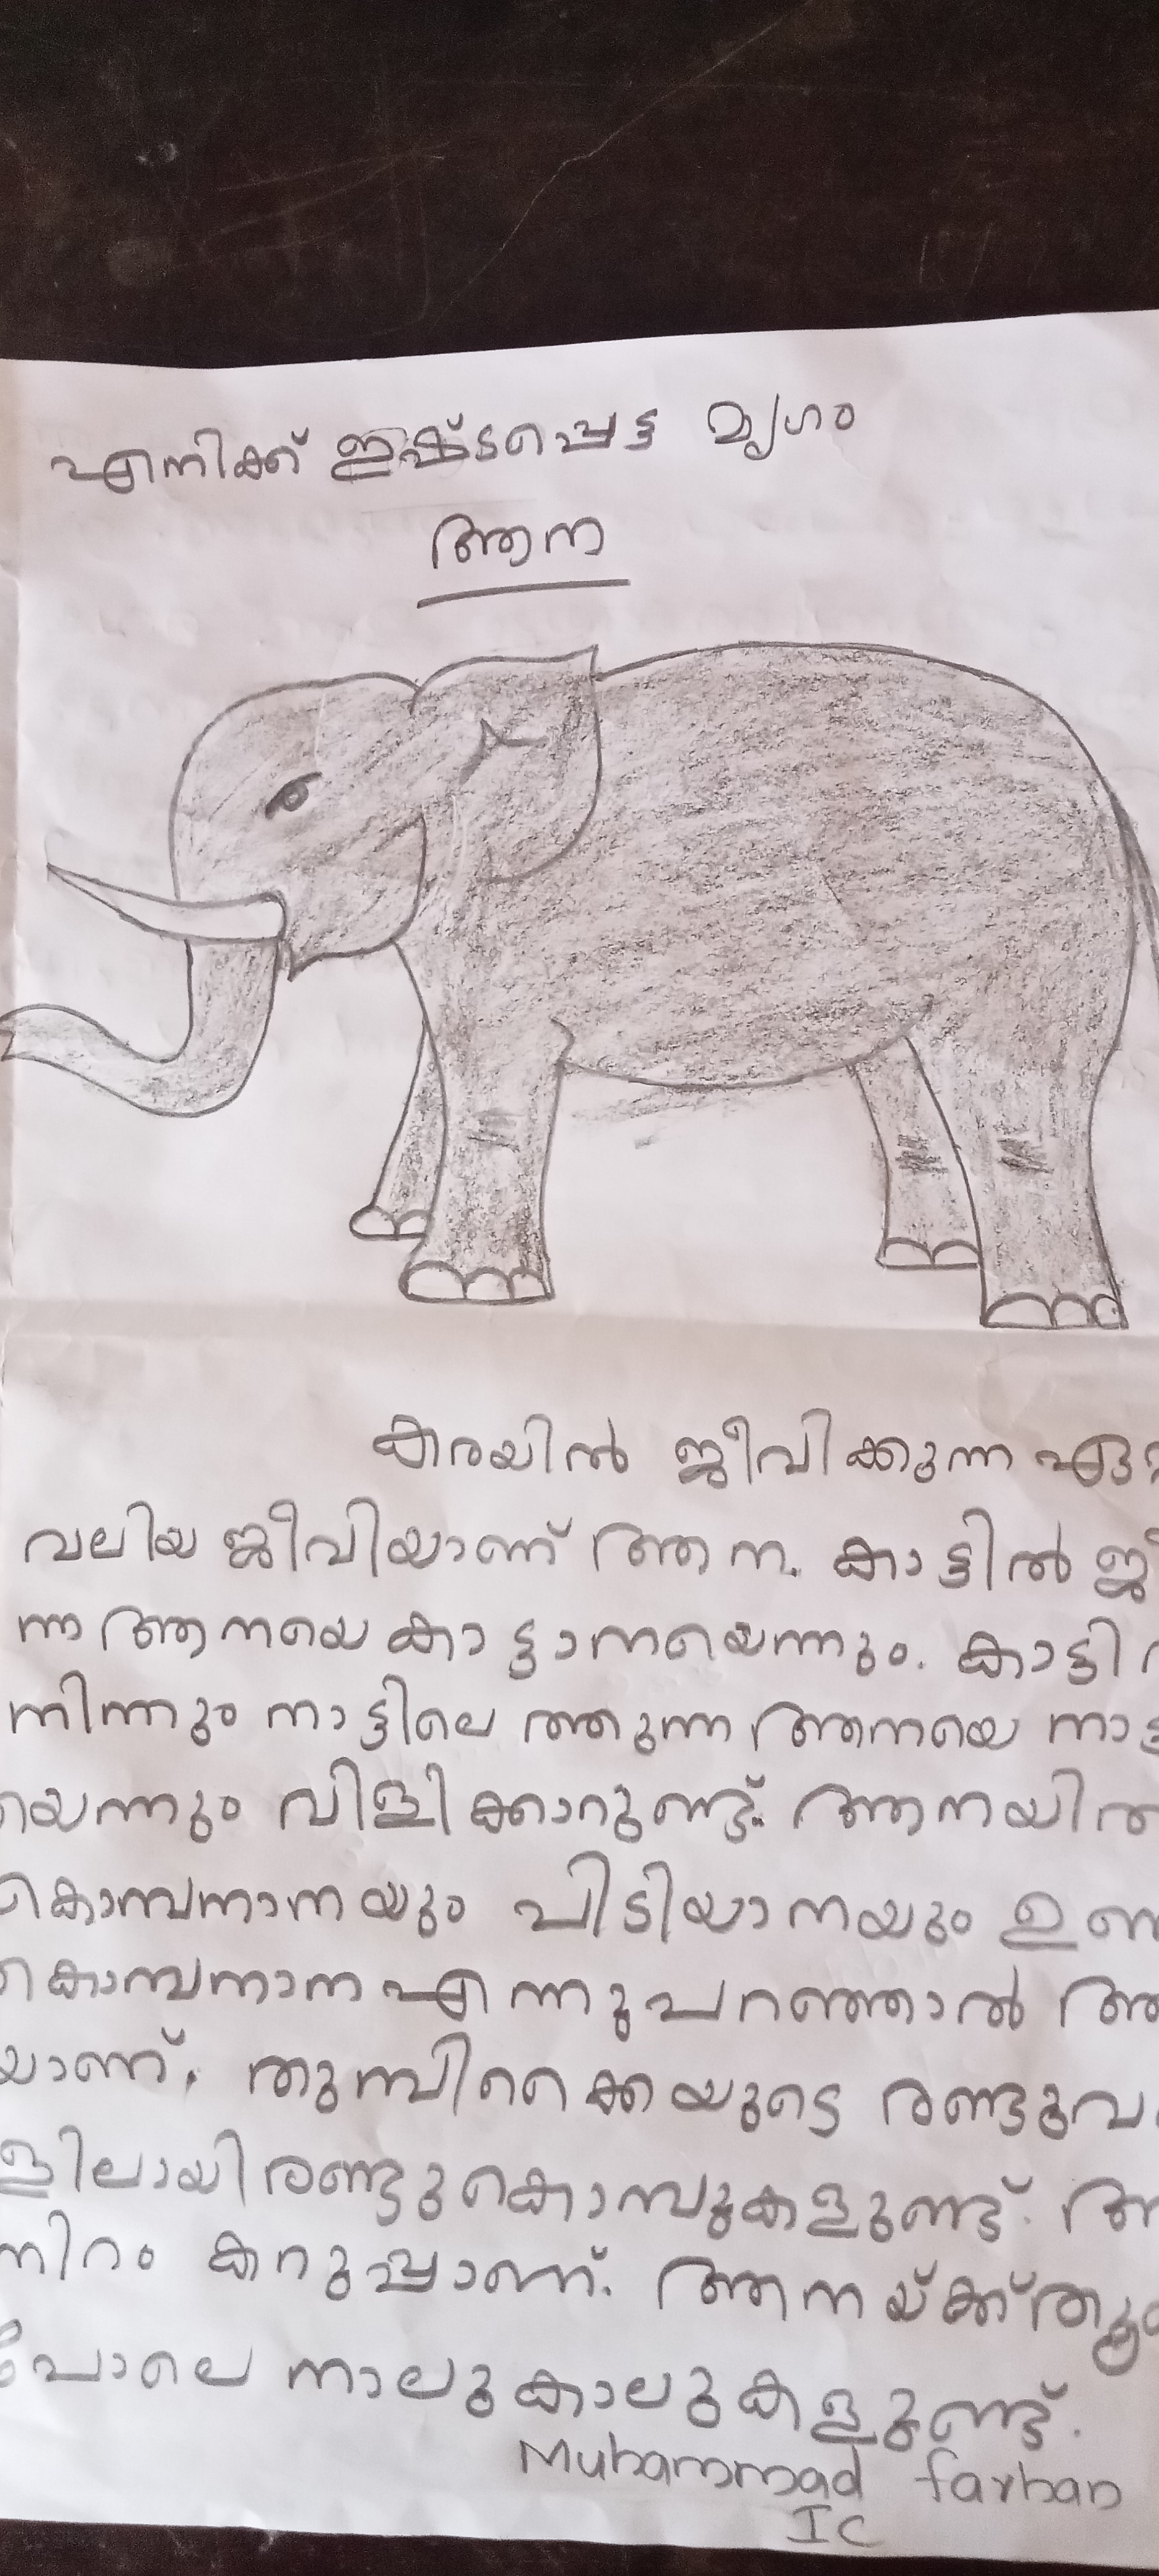 എനിക്ക് ഇഷ്ടപ്പെട്ട മൃഗം
ആന
കരയിൽ ജീവിക്കുന്ന
വലിയ ജീവിയാണ് ആന. കാട്ടിൽ
ന്ന ആനയെ കാട്ടാനയെന്നും.
നിന്നും നാട്ടിലെത്തുന്ന ആനയെ
യെന്നും വിളിക്കാറുണ്ട്.
കൊമ്പനാനയും പിടിയാനയും
കൊമ്പനാന എന്നുപറഞ്ഞാൽ
യാണ്. തുമ്പികൈയുടെ
ളിലായി രണ്ടുകൊമ്പുകളുണ്ട്.
നിറം കറുപ്പാണ്. ആനയ്ക്ക്
പോലെ നാലുകാലുകളുണ്ട്.
Muhammad farhan
IC